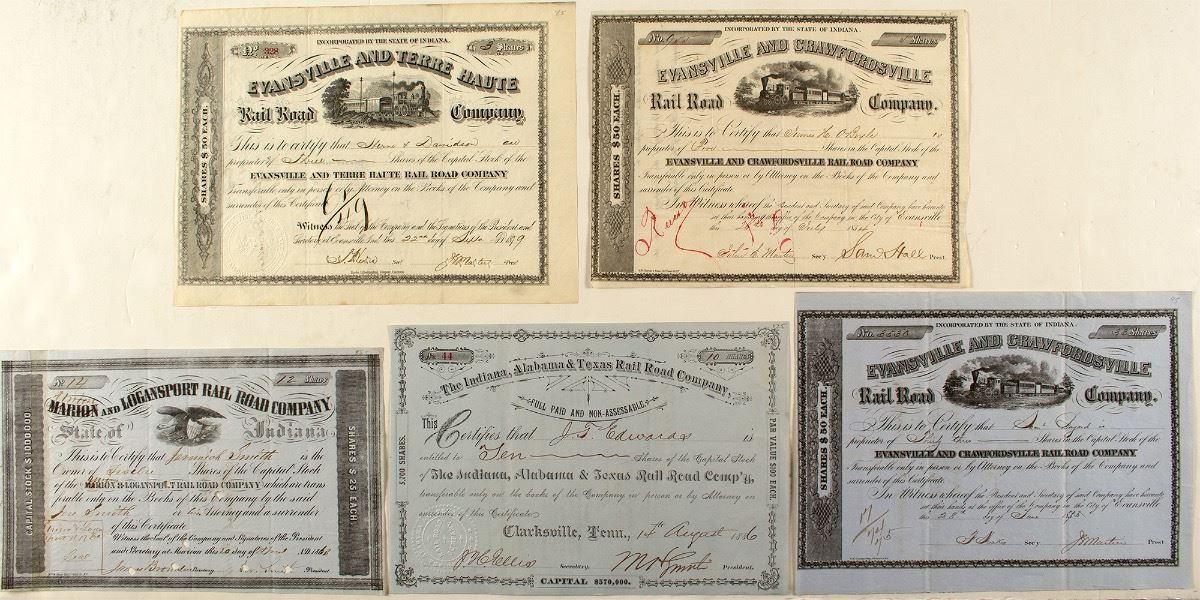 No 328
INCORPORATED BY THE STATE OF INDIANA.
3 Shares
EVANSVILLE AND TERRE HAUTE
Rail Road Company.
SHARES $ 50 EACH.
This is to certify that Stern & Davidson are
proprietor of Three Shares of the Capital Stock of the
EVANSVILLE AND TERRE HAUTE RAIL ROAD COMPANY
Transferable only in person or by Attorney on the Books of the Company and
surrender of this Certificate
Witness the Seal of the Company and the Signatures of the President and
Secretary at Evansville Ind. this 22nd day of
Sec. Pres
No.
INCORPORATED BY THE STATE OF INDIANA.
Shares
EVANSVILLE AND CRAWFORDSVILLE
Rail Road Company.
SHARES $ 50 EACH.
This is to Certify that James H. O'Boyle is
proprietor of Shares in the Capital Stock of the
EVANSVILLE AND CRAWFORDSVILLE RAIL ROAD COMPANY
Transferable only in person or by Attorney on the Books of the Company and
surrender of this Certificate.
In Witness whereof the President and Secretary of said Company have hereunto
set their hands at the office of the Company in the City of Evansville
this day of July
Martin Sec'y Sam Hall Prest.
No 121
12 Shares
MARION AND LOGANSPORT RAIL ROAD COMPANY
State of Indiana
CAPITAL STOCK $ 1000000
SHARES $ 25 EACH
This is to Certify that Jeremiah Smith is the
Owner of Twelve Shares of the Capital Stock
of the MARION & LOGANSPORT RAIL ROAD COMPANY which are trans
ferable only on the Books of this Company by the said
Smith or Attorney and a surrender
of this Certificate
Witness the Seal of the Company and Signatures of the President
and Secretary at Marion this day of
Seal
Secretary President
No. 44
10 SHARES
The Indiana, Alabama & Texas Rail Road Company,
FULL PAID AND NON-ASSESSABLE.
5,700 SHARES.
PAR VALUE $100 EACH.
This Certifies that J. T. Edwards is
entitled to Ten Shares of the Capital Stock of
The Indiana, Alabama & Texas Rail Road Comp'y,
transferable only on the books of the Company in person or by Attorney on
surrender of this Certificate.
Clarksville, Tenn., 1st August 1886
Secretary. President.
CAPITAL $570,000.
No.
INCORPORATED BY THE STATE OF INDIANA.
Shares
EVANSVILLE AND CRAWFORDSVILLE
Rail Road Company.
SHARES $ 50 EACH.
This is to Certify that is
proprietor of Shares in the Capital Stock of the
EVANSVILLE AND CRAWFORDSVILLE RAIL ROAD COMPANY
Transferable only in person or by Attorney on the Books of the Company and
surrender of this Certificate.
In Witness whereof the President and Secretary of said Company have hereunto
set their hands at the office of the Company in the City of Evansville
this 28th day of June
Sec'y Prest.